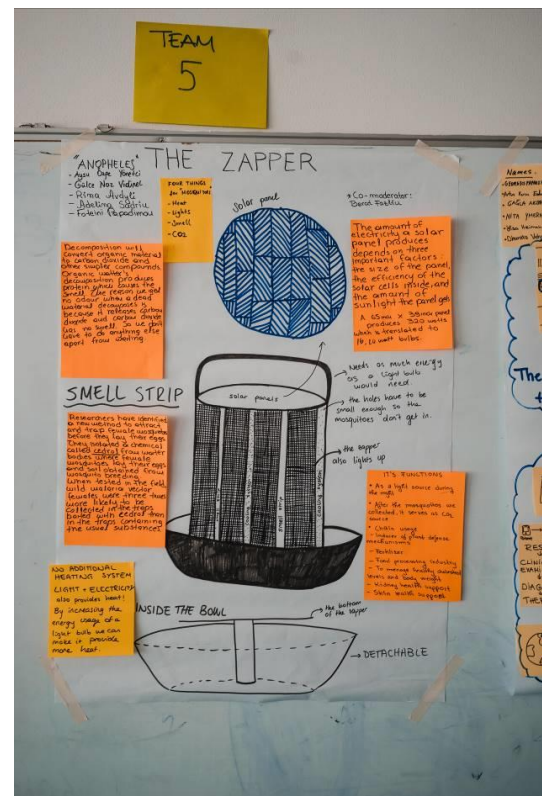 TEAM
5
THE ZAPPER
"ANOPHELES"
- Rima Avdyli
- Foteini Papadimou
* Co-moderator:
for MOSQUITOES
- Heat
- Lights
- Smell
- CO2
Solar panel
Decomposition will
convert organic material
to carbon dioxide and
other simpler compounds.
Organic water's
decomposition produces
protein which causes the
smell. The reason we get
no odour when a dead
material decomposes is
because it releases carbon
dioxide and carbon dioxide
has no smell. So we don't
have to do anything else
apart from adding
The amount of
electricity a solar
panel produces
depends on three
important factors:
the size of the panel,
the efficiency of the
solar cells inside, and
the amount of
sunlight the panel gets.
produces 320 watts
which is translated to
watt bulbs.
SMELL STRIP
Researchers have identified
a new method to attract
and trap female mosquitoes
before they lay their eggs.
They isolated a chemical
called cedrol from water
bodies where female
mosquitoes lay their eggs
and soil obtained from
mosquito breeding.
When tested in the field,
wild malaria vector
females were three times
more likely to be
collected in the traps
baited with cedrol than
in the traps containing
the usual substances
solar panels
Needs as much energy
as a light bulb
would need.
the holes have to be
small enough so the
mosquitoes don't get in.
the zapper
also lights up
IT'S FUNCTIONS
• As a light source during
the night
• After the mosquitoes are
collected, it serves as CO2
source
• Chitin usage
- Inducer of plant defense
mechanisms
- Fertiliser
- Food processing industry
- To manage healthy cholesterol
levels and body weight
- Kidney health support
NO ADDITIONAL
HEATING SYSTEM
LIGHT + ELECTRICITY
also provides heat!
By increasing the
energy usage of a
light bulb we can
make it provide
more heat.
INSIDE THE BOWL
the bottom
of the zapper
DETACHABLE
Names:
The
CLINI
EXAMI
DIAG
THE